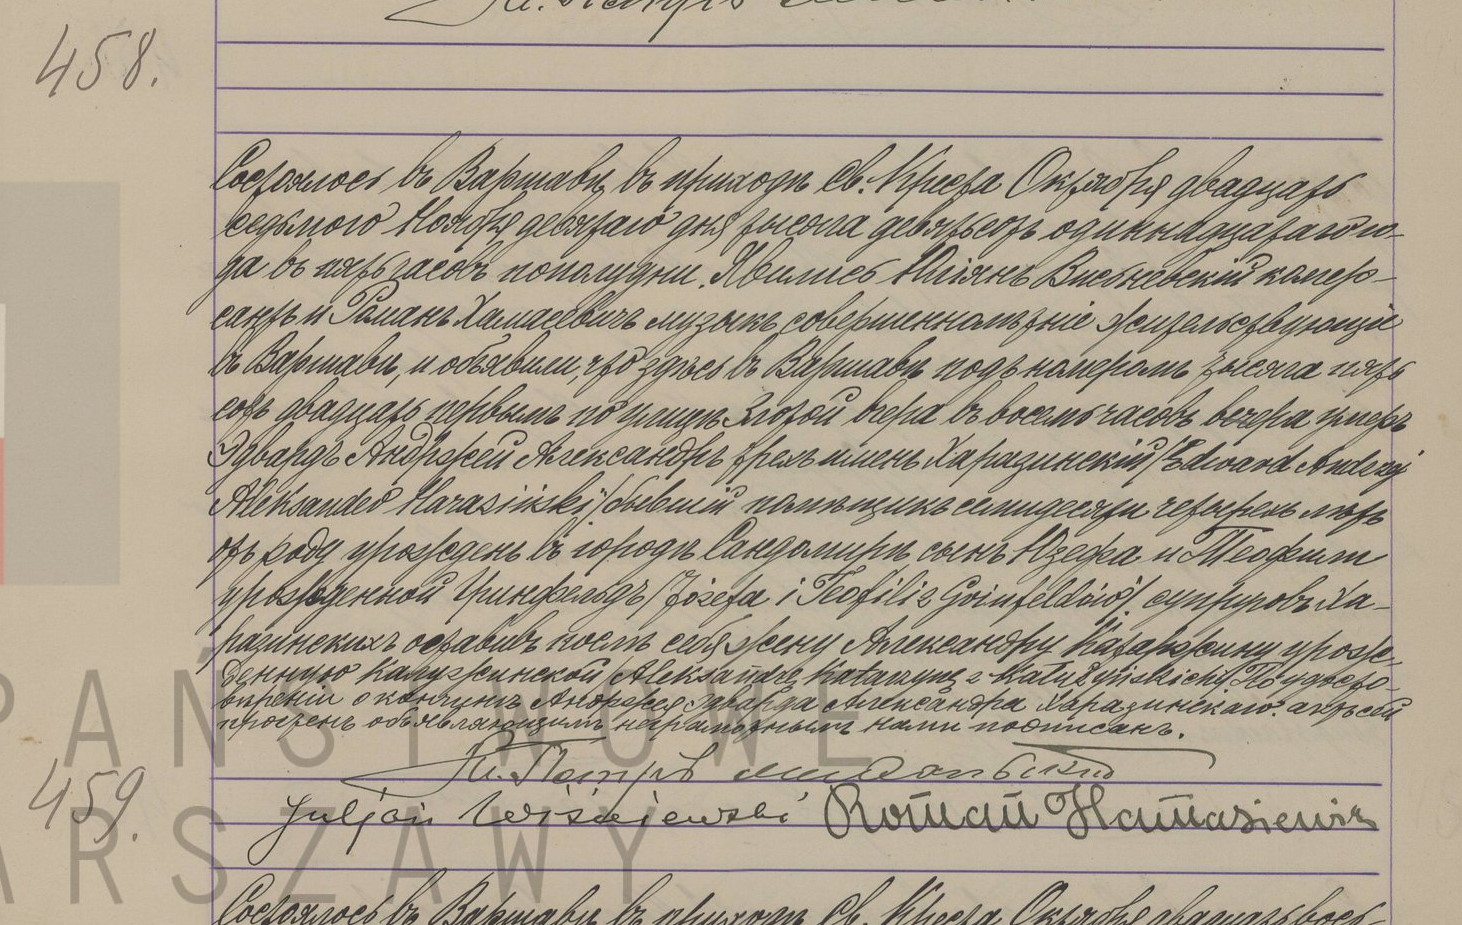 458.
Состоялось въ Варшавѣ въ приходѣ Св. Креста Октября двадцать
седьмого Ноября десятаго дня тысяча девятьсотъ одиннадцатаго го-
да въ пять часовъ пополудни. Явились Юліянъ Висьневскій комер-
сантъ и Романъ Хамасевичъ музыкъ совершеннолѣтніе жительствующіе
въ Варшавѣ, и объявили, что здѣсь въ Варшавѣ подъ номеромъ тысяча пять
сотъ двадцать первымъ по улицѣ Злотой вчера въ восемь часовъ вечера умеръ
Эдвардъ Андржей Александръ трехъ именъ Харазинскій /Edward Andrzej
Aleksander Harasiński/ бывшій помѣщикъ семидесяти четырехъ лѣтъ
отъ роду урожденъ въ городѣ Сандомирѣ сынъ Юзефа и Теофили
урожденной Гринфельдъ /Józefa i Teofili z Grinfeldów/. супруговъ Ха-
разинскихъ оставивъ послѣ себя жену Александру Катаржину урож-
денную Калужинской Aleksandrę Katarzynę z Kałużyńskich/ По удосто-
вѣреніи о кончинѣ Андржея Эдварда Александра Харазинскаго. актъ сей
прочтенъ объявляющимъ неграмотнымъ нами подписанъ.
Кс. Петръ
Juljan Wiśniewski Roman Hamasiewicz
459.
Состоялось въ Варшавѣ въ приходѣ Св. Креста Октября двадцать вось-
PAŃSTWOWE
ARSZAWY